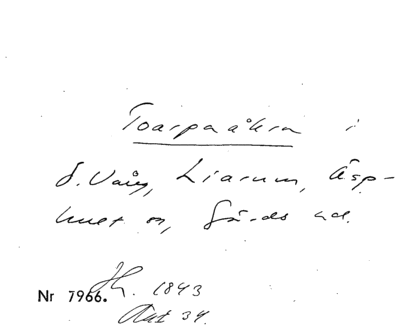 Toarpaåkra i
S. Vång, Liarum, Äsp-
huet m, Gärds hd.
Nr 7966. Jh. 1843
Akt 34.